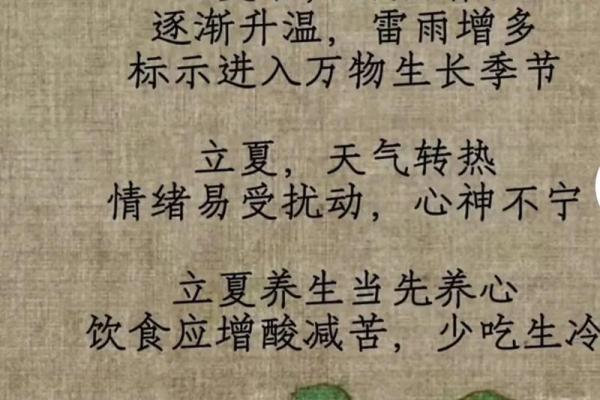 逐渐升温，雷雨增多
标示进入万物生长季节
立夏，天气转热
情绪易受扰动，心神不宁
立夏养生当先养心
饮食应增酸减苦，少吃生冷